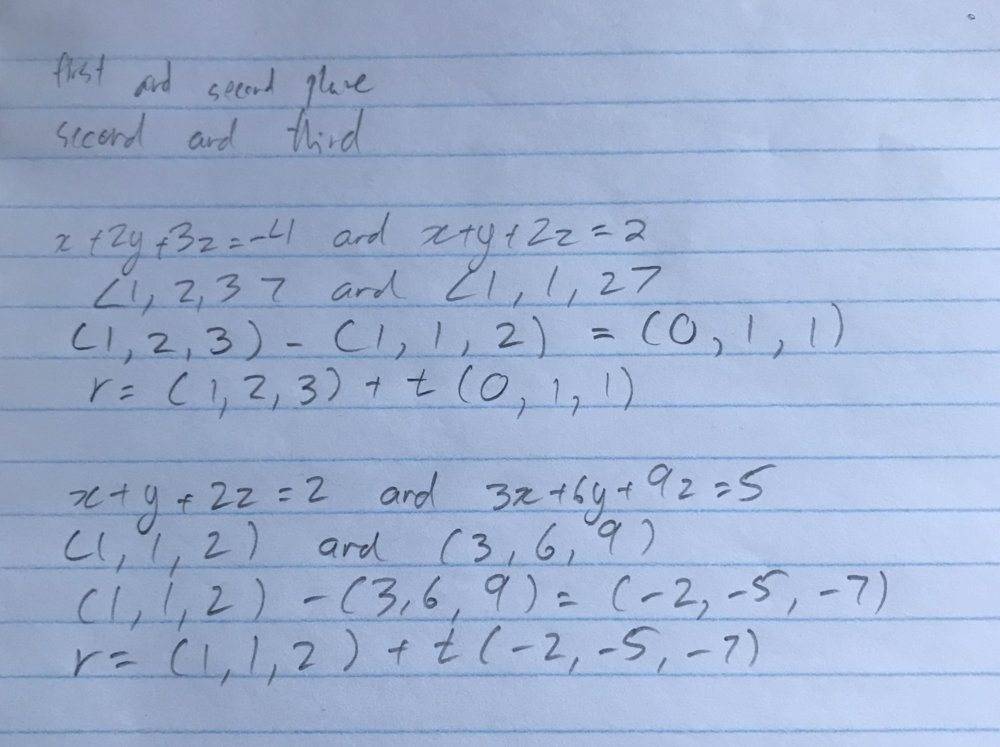 first and second plane
second and third
x+2y+3z=-4 and x+y+2z=2
<1,2,3> and <1,1,2>
(1,2,3)-(1,1,2) = (0,1,1)
r= (1,2,3)+t(0,1,1)
x+y+2z=2 and 3x+6y+9z=5
(1,1,2) and (3,6,9)
(1,1,2)-(3,6,9)=(-2,-5,-7)
r= (1,1,2)+t(-2,-5,-7)